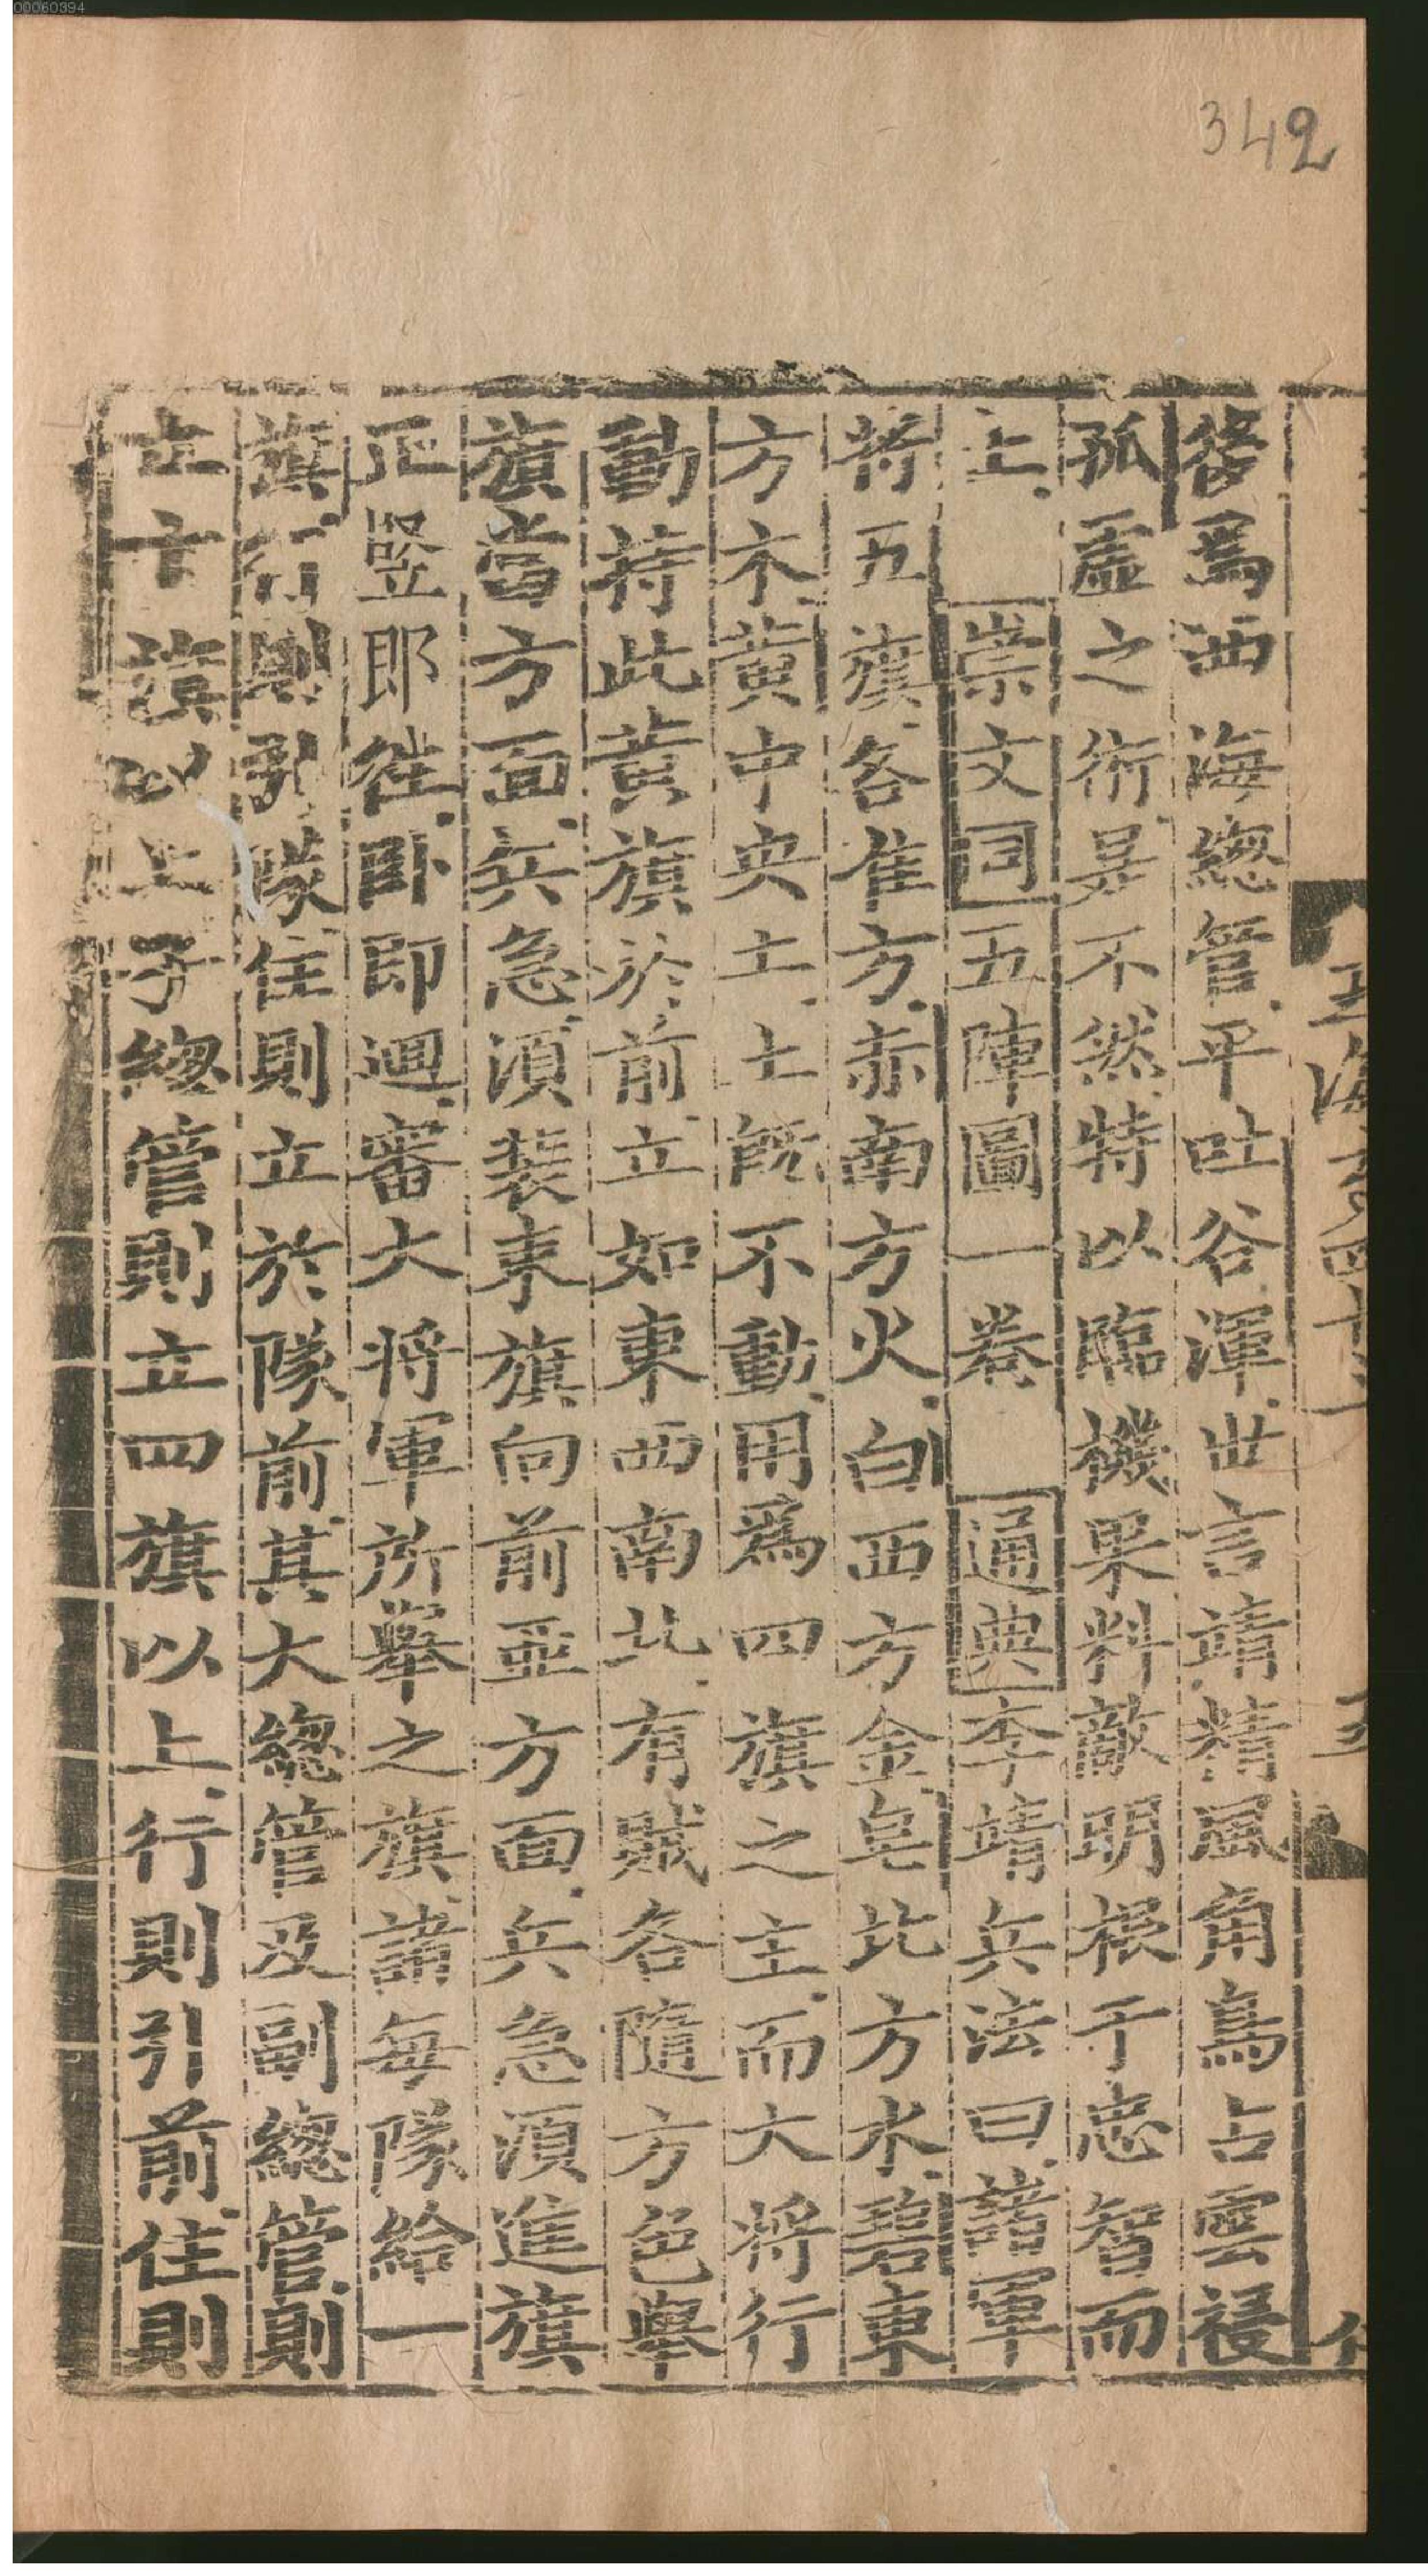 00060394
342
後爲西海總管平吐谷渾世言靖精風角鳥占雲祲
孤虛之術是不然特以臨機果料敵明根于忠智而
上 崇文同五陣圖一卷 通典李靖兵法曰諸軍
將五旗各準方赤南方火白西方金皂北方水碧東
方木黃中央土土既不動用爲四旗之主而大將行
動持此黃旗於前立如東西南北有賊各隨方色舉
旗當方面兵急須裝束旗向前亞方面兵急須進旗
正竪即住卧即迴審大將軍所舉之旗諸每隊給一
旗行則引隊住則立於隊前其大總管及副總管則
立十旗以上子總管則立四旗以上行則引前住則